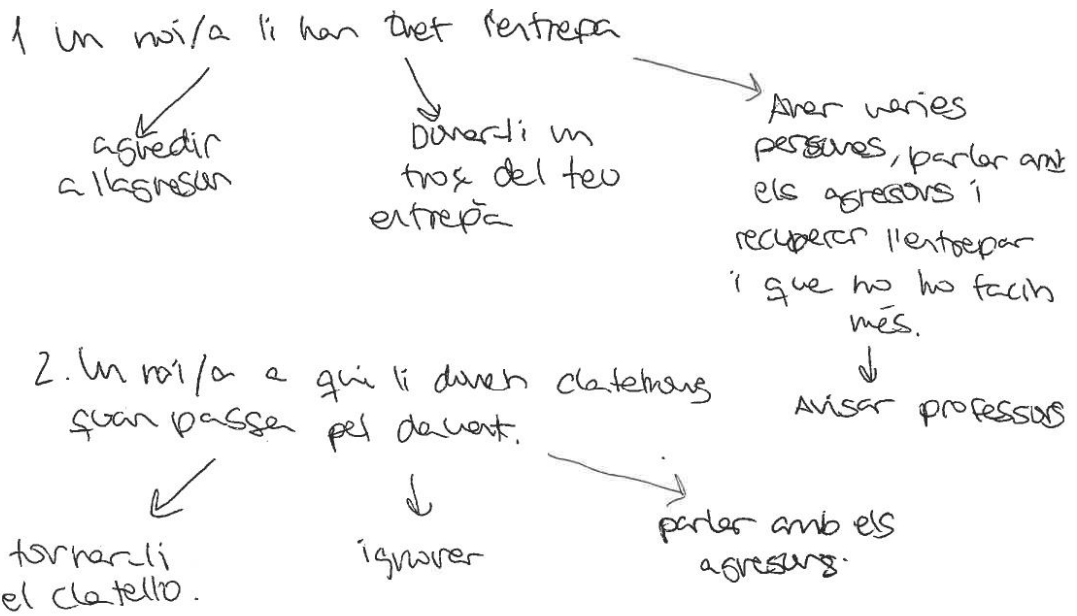 1 un noi/a li han tret l'entrepa
agredir
a l'lagresun
Donar-li un
trox del teu
entrepà
Anar varies
persones, parlar amb
els agresors i
recuperar l'entrepar
i que no ho facin
més.
Avisar professors
2. Un noi/a a qui li donen clatellons
quan passa pel davant.
tornar-li
el clatelló.
ignorar
parlar amb els
agresors.